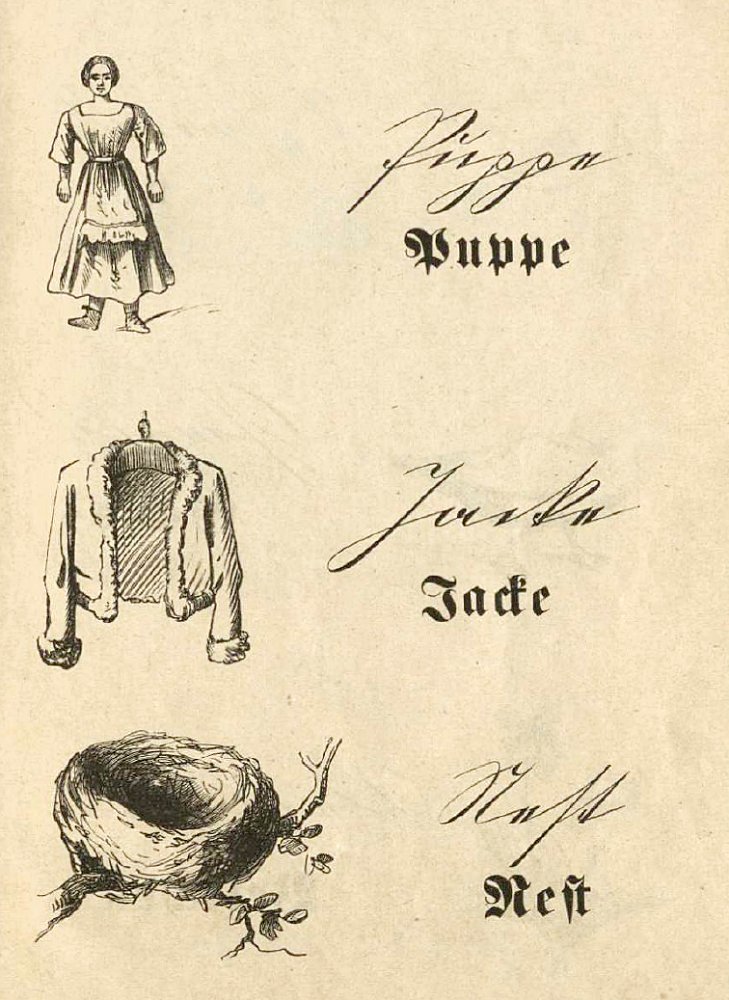 Puppe
Puppe
Jacke
Jacke
Neſt
Neſt